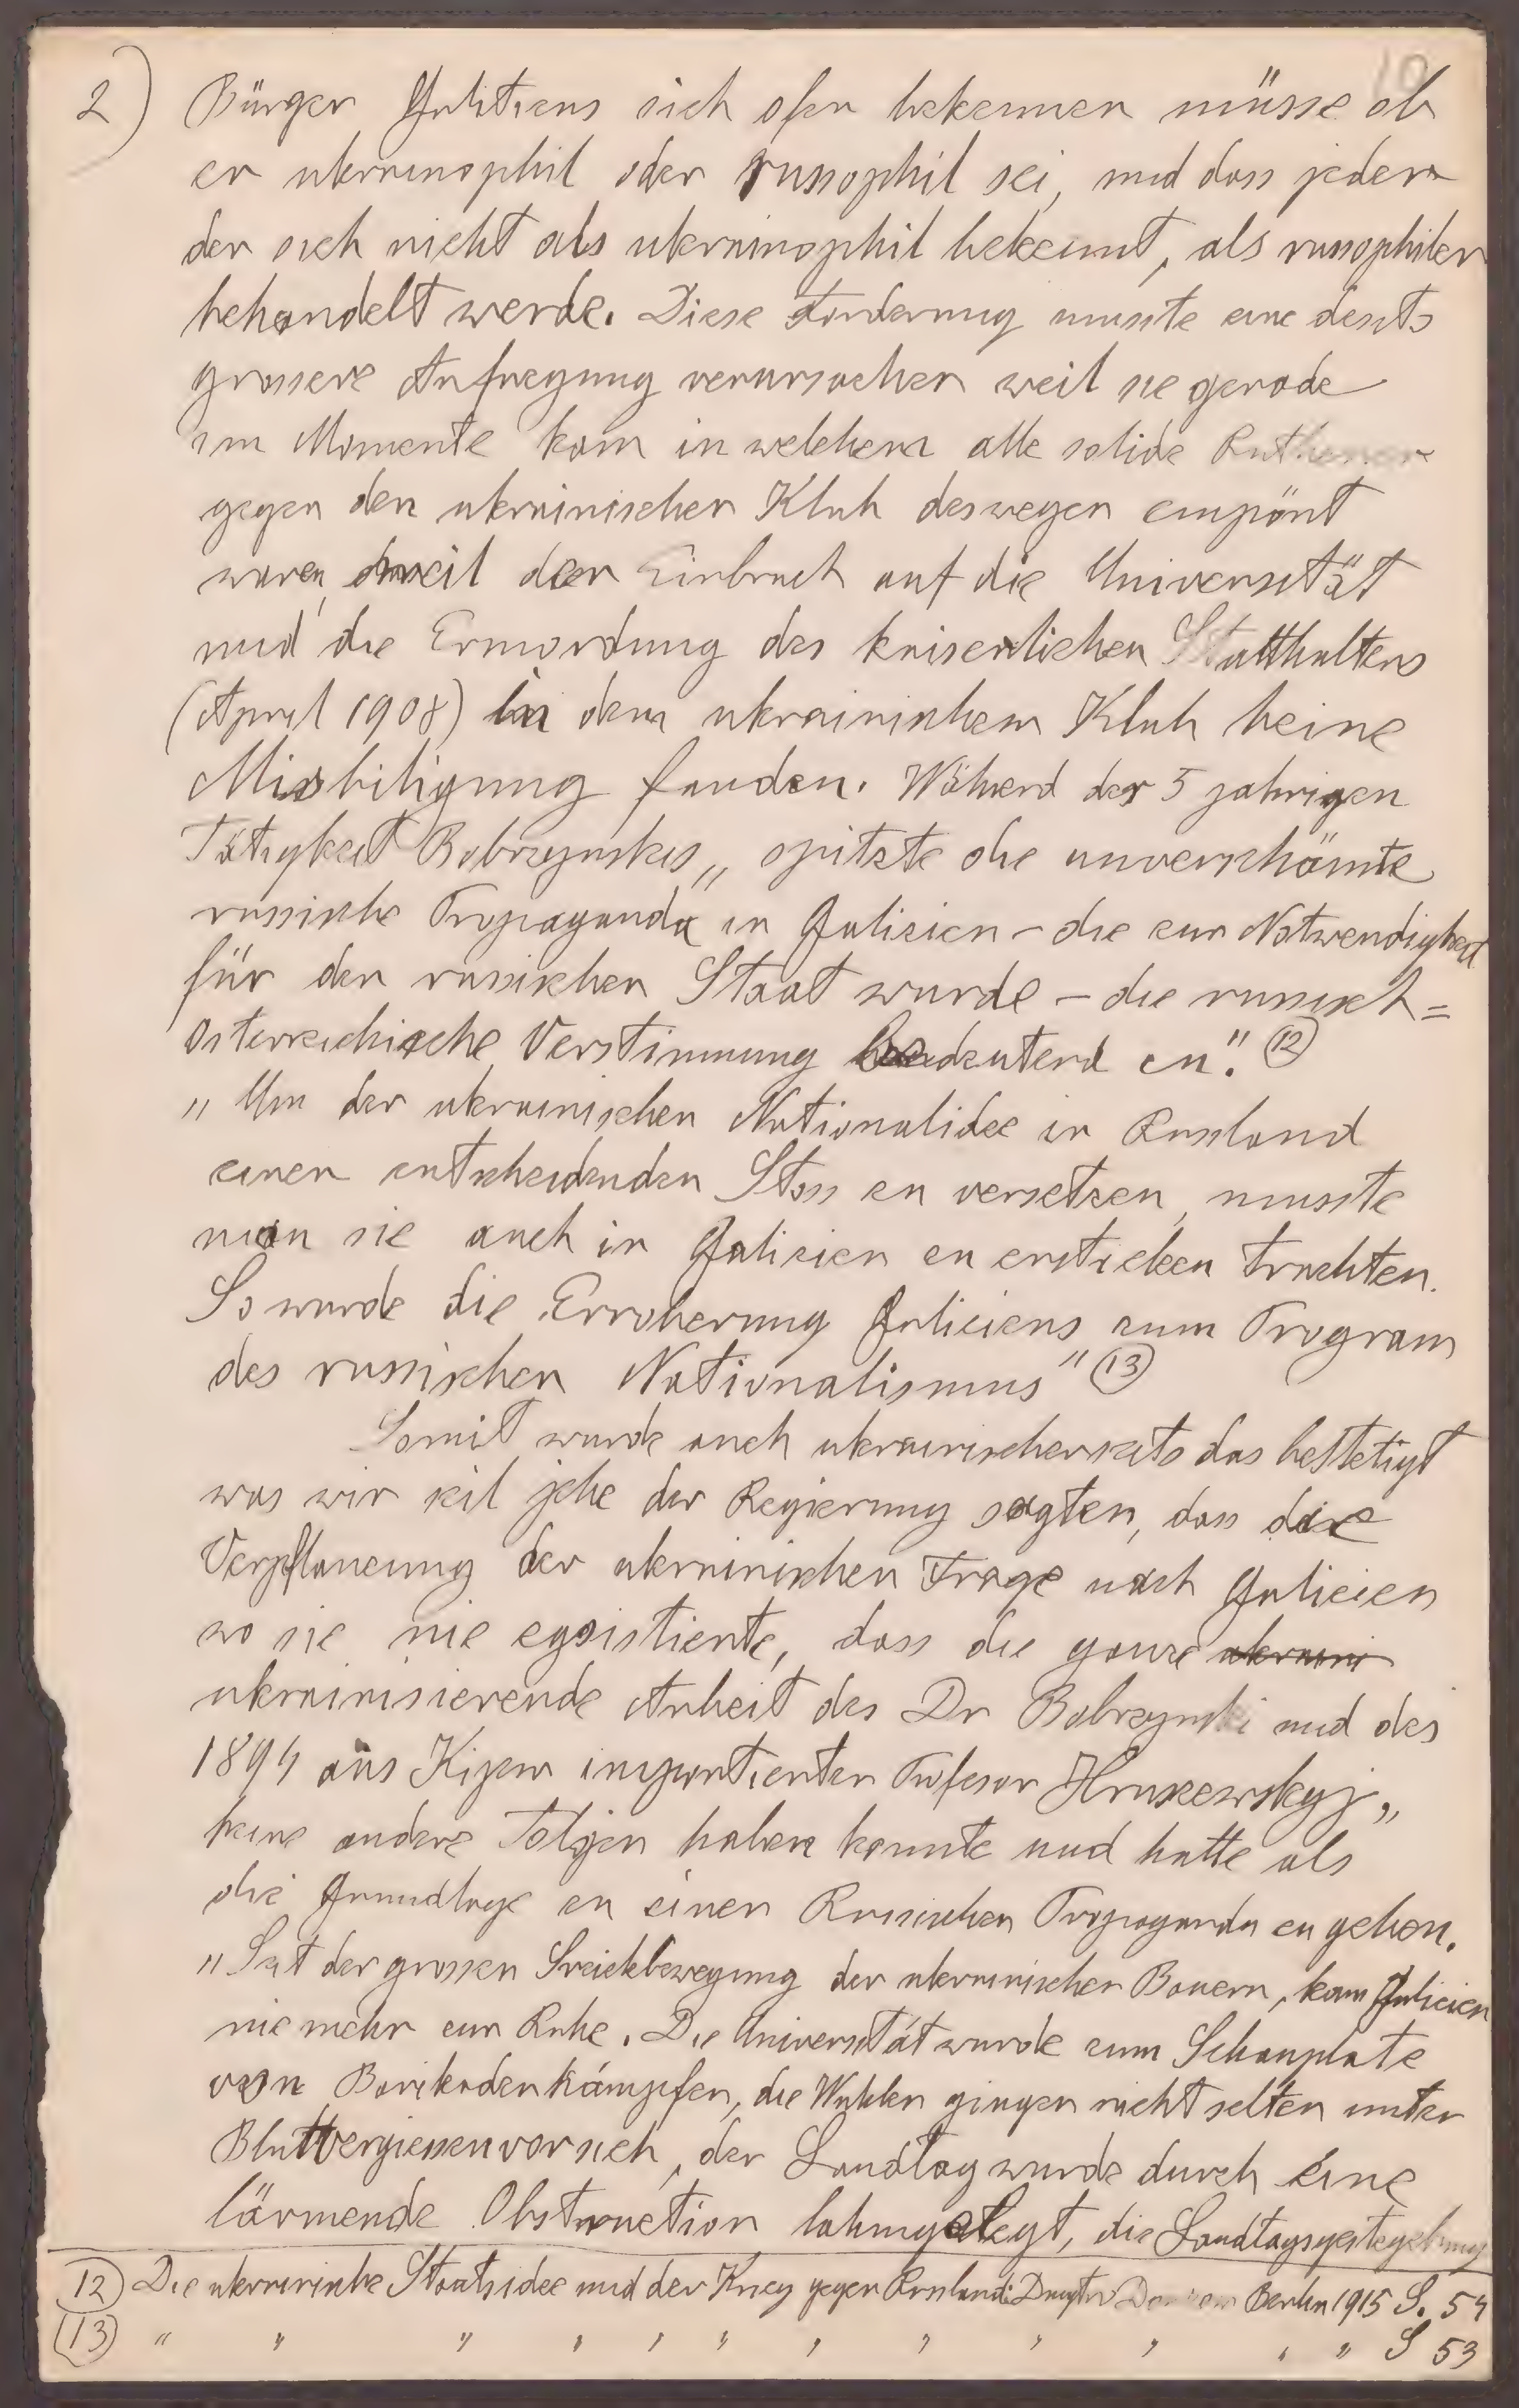 10
2) Bürger Galitiens sich ofen bekennen müsse ob
er ukrainophil oder russophil sei, und dass jeder
der sich nicht als ukrainophil bekennt, als russophiler
behandelt werde. Diese Forderung musste eine desto
grossere Aufregung verursachen weil sie gerade
im Momente kam in welchem alle solide Ruthenen
gegen den ukrainischen Klub deswegen empört
waren, weil der Einbruch auf die Universität
und die Ermordung des kaiserlichen Statthalters
(April 1908) in dem ukrainischem Klub keine
Misbiligung fanden. Währed der 5 jahrigen
Tätigkeit Bobrzynskis „ spitzte die unverschämte
russische Propaganda in Galizien – die zur Notwendigkeit
für den russischen Staat wurde – die russisch=
österreichische Verstimmung bedeutend zu." (12)
„ Um der ukrainischen Nationalidee in Russland
einen entscheidenden Stoss zu versetzen, musste
man sie auch in Galizien zu ersticken trachten.
So wurde die Erroberung Galiciens zum Program
des russischen Nationalismus" (13)
Somit wurde auch ukrainischerseits das bestetigt
was wir seit jehe der Regierung sagten, dass die
Verpflanzung der ukrainischen Frage nach Galicien
wo sie nie egsistierte, dass die ganze ukraini
ukrainisierende Arbeit des Dr Bobrzynski und des
1894 aus Kijew importierten Profesor Hruszewskyj „
keine andere Folgen haben konnte und hatte als
die Grundlage zu einer Russischen Propaganda zu geben.
„ Seit der grossen Streickbewegung der ukrainischen Bauern, kam Galicien
nie mehr zur Ruhe. Die Universität wurde zum Schauplatz
von Barikadenkämpfen, die Wahlen gingen nicht selten unter
Blutvergiessen vor sich, der Landtag wurde durch eine
lärmende Obstruction lahmgelegt, die Landtagsgestegebung
(12) Die ukrainische Staatsidee und der Krieg gegen Russland: Dmytro Donzow Berlin 1915 S. 54
(13) " " " " " " " " " " " " S 53